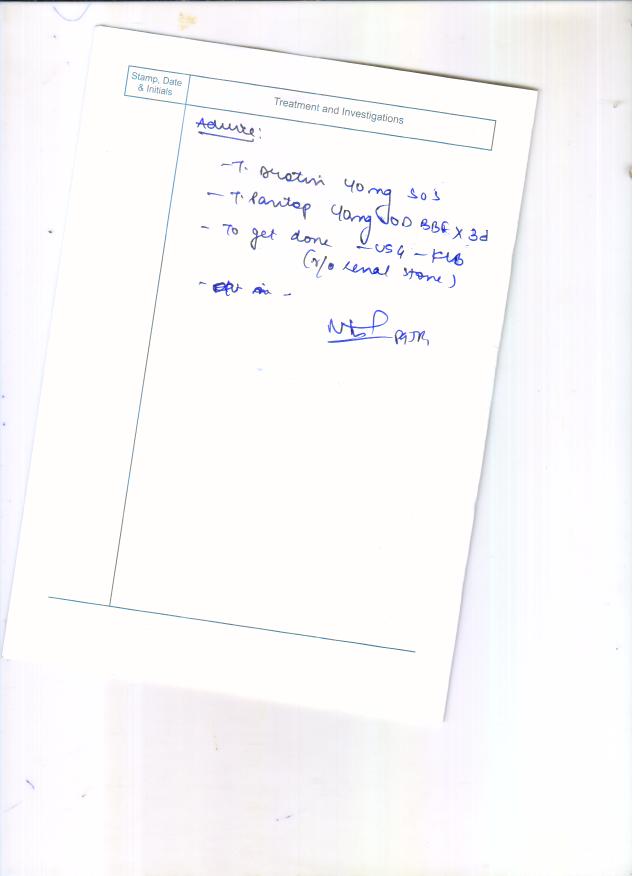 Stamp, Date
& Initials
Treatment and Investigations
Advice:
- T. Drotin 40mg SOS
- T. Pantop 40mg OD BBF x 3d
- To get done - USG - KUB
(r/o renal stone)
PGJR